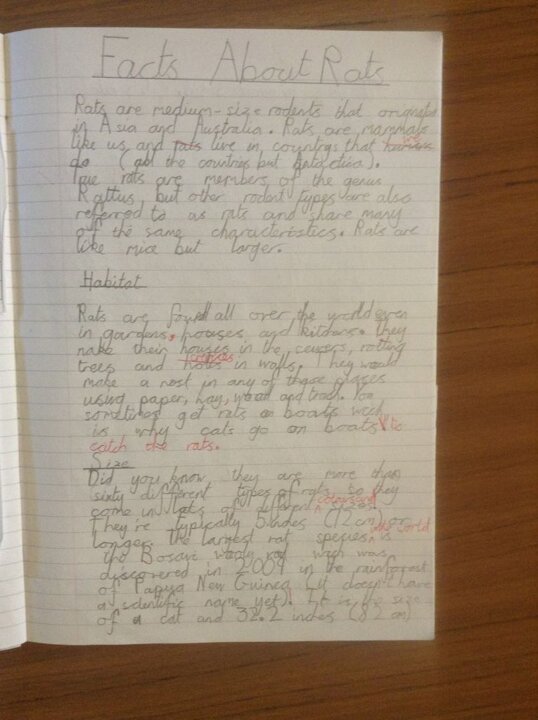 Facts About Rats
Rats are medium-size rodents that originated
in Asia and Australia. Rats are mammals
like us, and rats live in countrys that we humans
do (all the countries but
True rats are members of the genus
Rattus, but other rodent types are also
referred to as rats and share many
of the same characteristics. Rats are
like mice but larger.
Habitat
Rats are found all over the world even
in gardens, houses and kitchens. they
make their houses in the sewers, rotting
trees and holes in walls. They would
make a nest in any of these places
using paper, hay, wood and trash. You
sometimes get rats on boats wich
is why cats go on boats to
catch the rats.
Size
Did you know they are more than
sixty different types of rats so they
come in lots of different colours and sizes.
They're typically 5 inches (12 cm) or
longer. the largest rat species in the world is
the Bosavi wooly rat wich was
discovered in 2009 in the rainforest
of Papua New Guinea (it doesn't have
a scientific name yet)! It is the size
of a cat and 32.2 inches (82 cm)